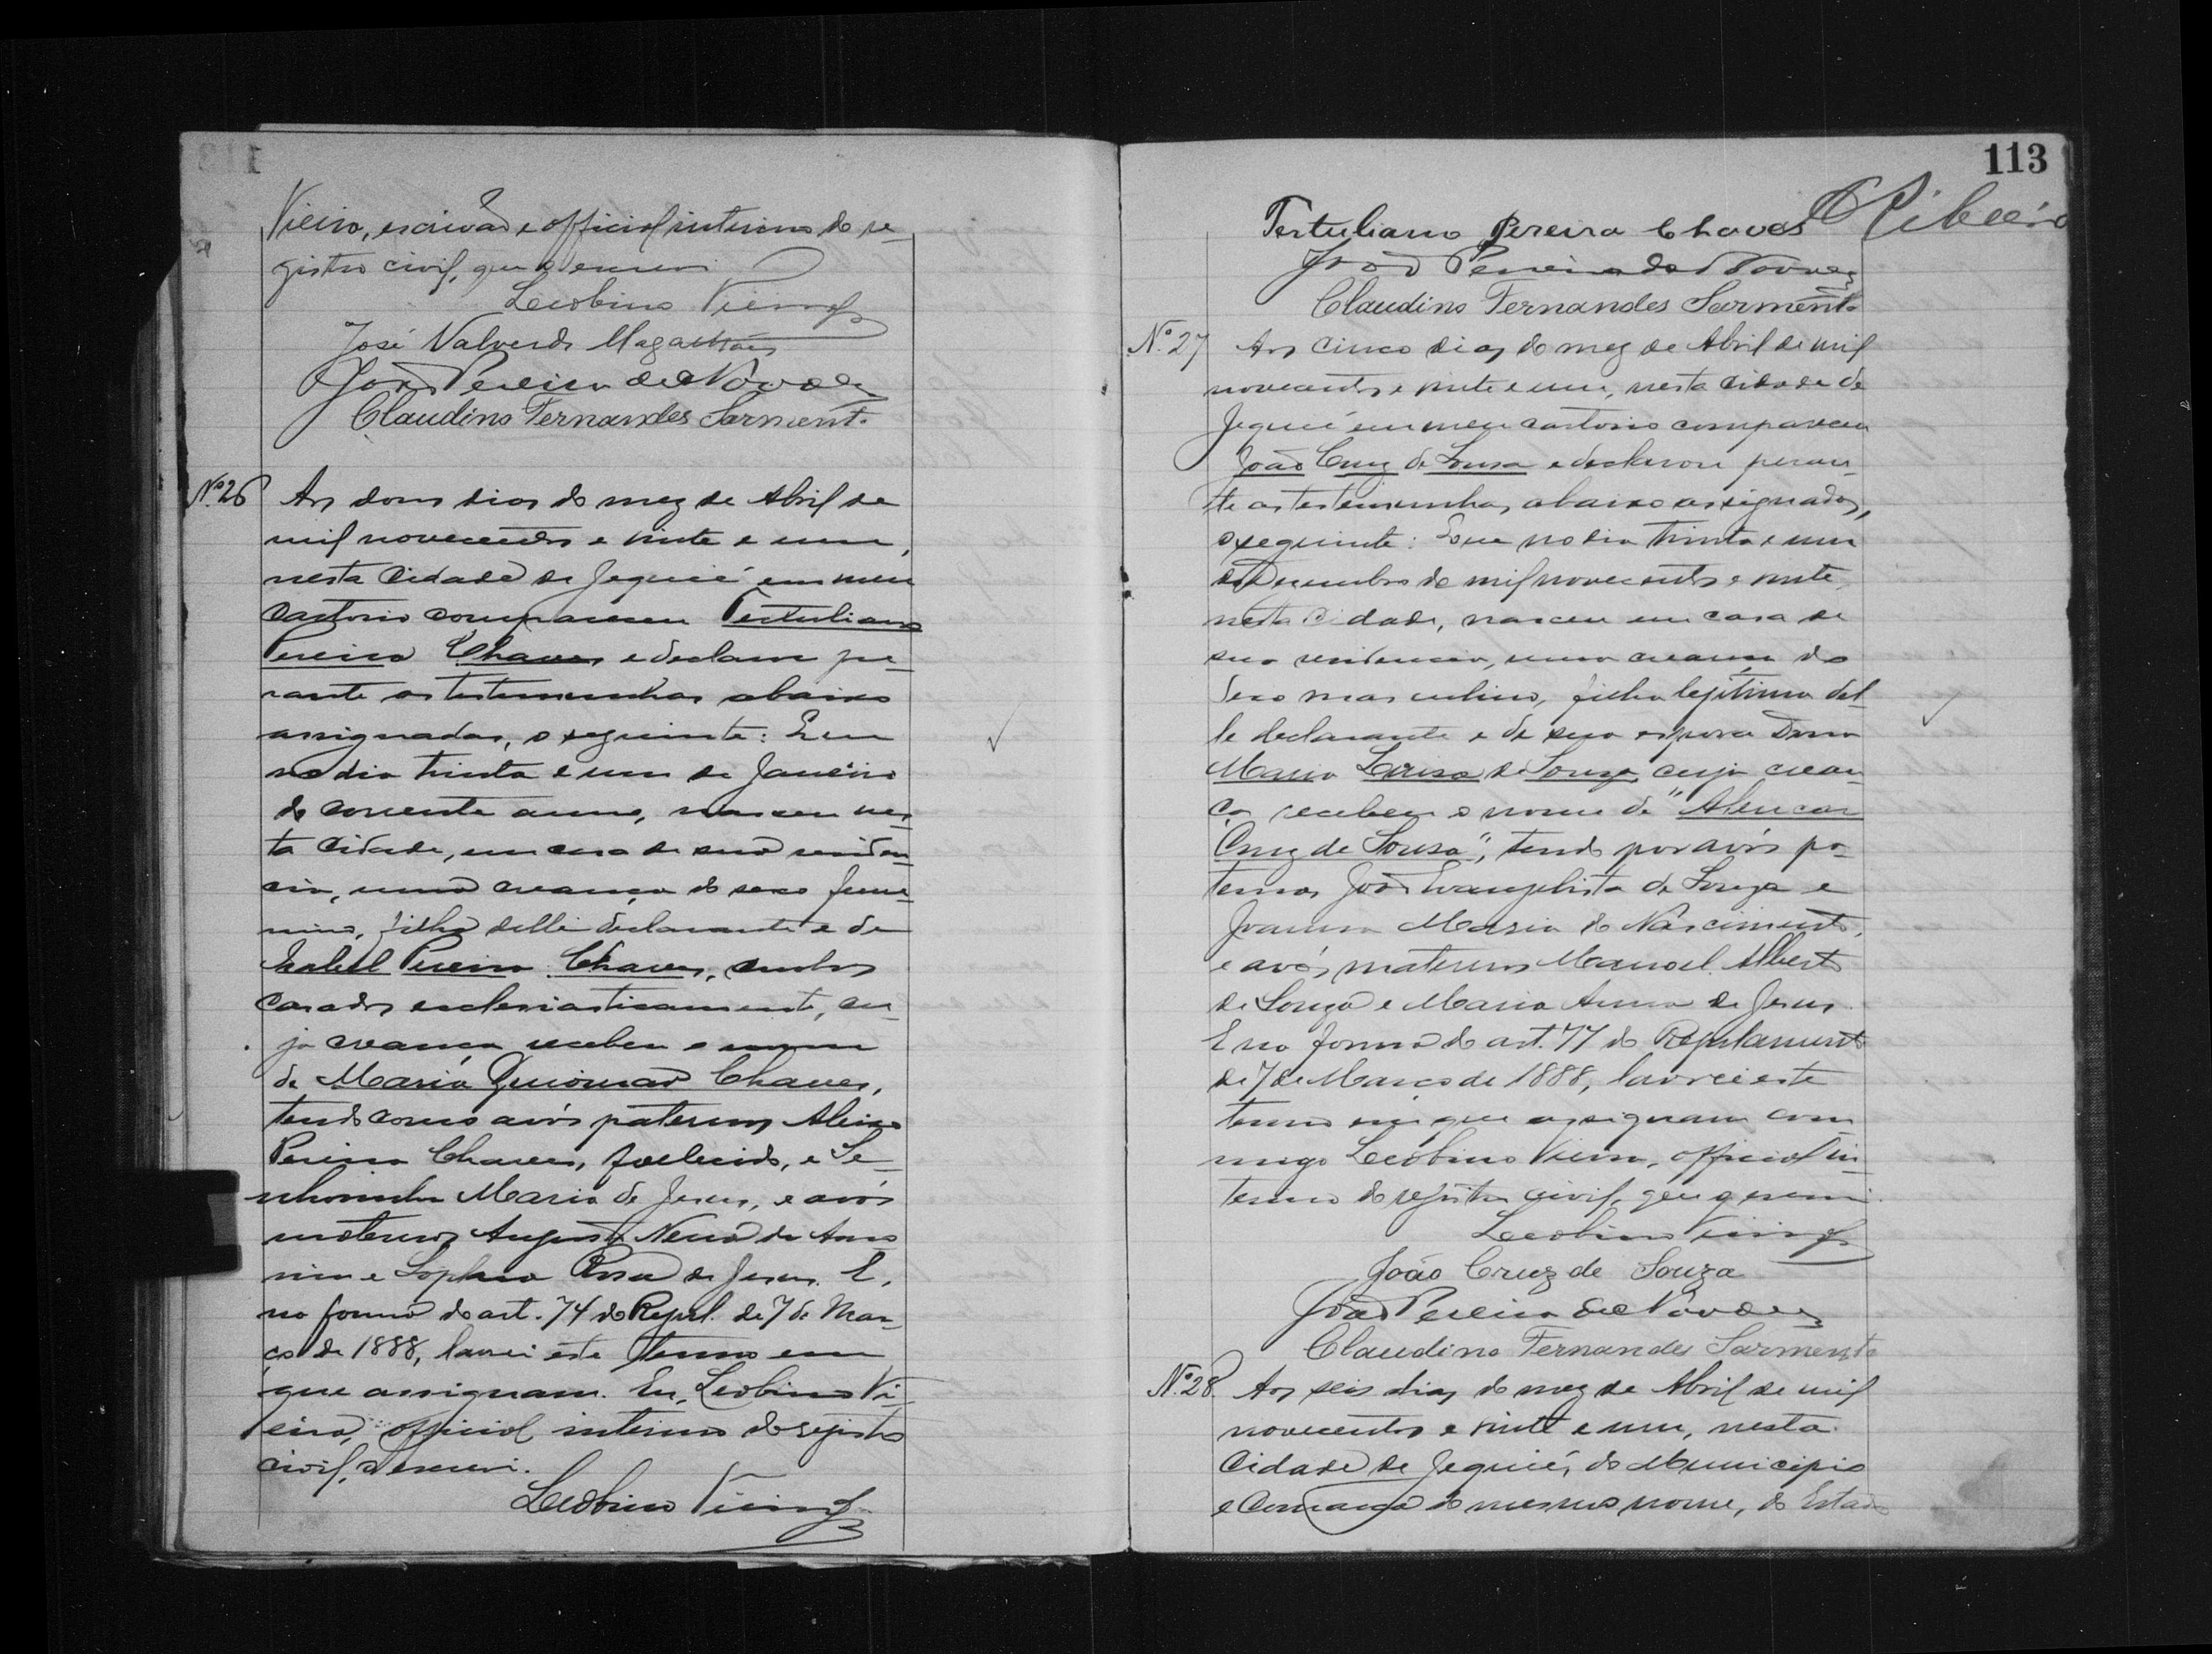 Vieira, escrivão e official interino do re-
gistro civil, que o escrevi
Leobino Vieira
José Valverde Magalhães
João Pereira de Novaes
Claudino Fernandes Sarmento
Nº 26 Aos dous dias do mez de Abril de
mil novecentos e vinte e um,
nesta Cidade de Jequié em meu
cartorio compareceu Tertuliano
Pereira Chaves e declarou pe-
rante as testemunhas abaixo
assignadas, o seguinte: Que
no dia trinta e um de Janeiro
do corrente anno, nasceu nes-
ta cidade, em casa de sua residen-
cia, uma creança do sexo femi-
nino, filha delle declarante e de
Izabel Pereira Chaves, ambos
casados ecclesiasticamente, cu-
ja creança recebeu o nome
de Maria Guiomar Chaves,
tendo como avós paternos
Pereira Chaves, fallecido, e Se-
nhorinha Maria de Jesus, e avós
maternos Augusto de
e Rosa de Jesus. E,
na forma do art. 74 do Regul. de 7 de Mar-
ço de 1888, lavrei este termo em
que assignam. Eu, Leobino Vi-
eira, official interino do registro
civil, o escrevi.
Leobino Vieira
113
Ribeiro
Tertuliano Pereira Chaves
João Pereira de Novaes
Claudino Fernandes Sarmento
Nº 27 Aos cinco dias do mez de Abril de mil
novecentos e vinte e um, nesta cidade de
Jequié em meu cartorio compareceu
João Cruz de Sousa e declarou peran-
te as testemunhas abaixo assignadas,
o seguinte: Que no dia trinta e um
de Dezembro de mil novecentos e vinte,
nesta Cidade, nasceu em casa de
sua residencia, uma creança do
sexo masculino, filho legitimo del-
le declarante e de sua esposa Dona
Maria Sousa de Souza, cuja crean-
ça recebeu o nome de "Alencar
Cruz de Sousa", tendo por avós pa-
ternos João Evangelista de Souza e
Joanna Maria do Nascimento,
e avós maternos Manoel Alberto
de Souza e Maria Anna de Jesus.
E na forma do art. 77 do Regulamento
de 7 de Março de 1888, lavrei este
termo em que assignam com-
migo Leobino Vieira, official in-
terino do registro civil, que o escrevi.
Leobino Vieira
João Cruz de Souza
João Pereira de Novaes
Claudino Fernandes Sarmento
Nº 28 Aos seis dias do mez de Abril de mil
novecentos e vinte e um, nesta
Cidade de Jequié, do Municipio
e Comarca do mesmo nome, do Estado